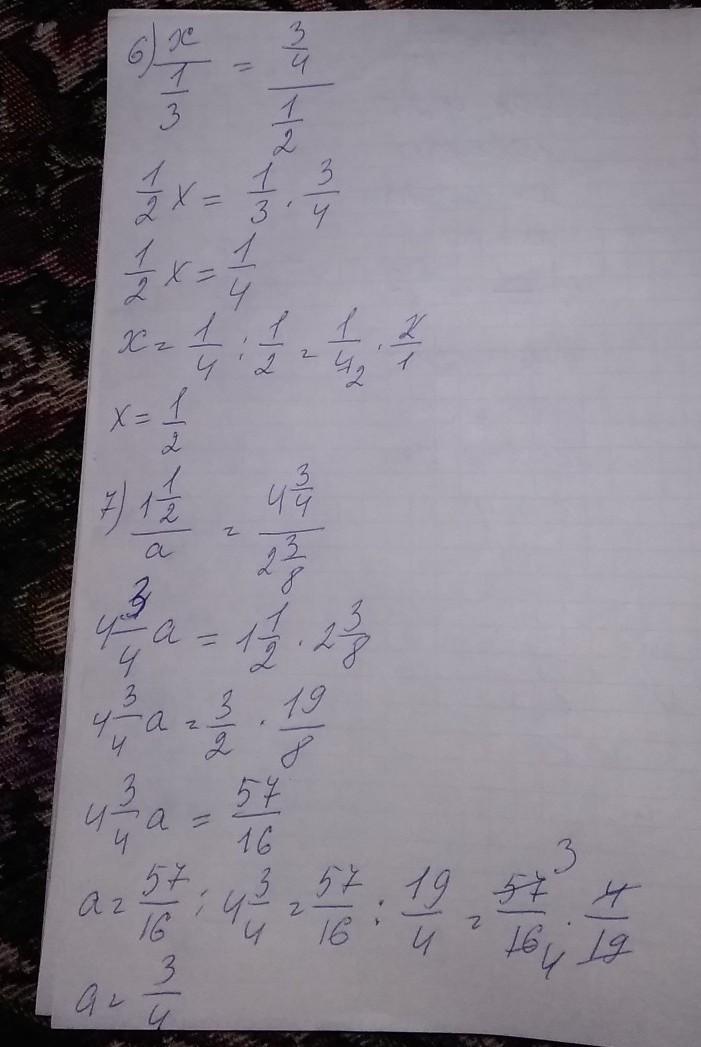 6) x/(1/3) = (3/4)/(1/2)
1/2 x = 1/3 · 3/4
1/2 x = 1/4
x = 1/4 : 1/2 = 1/4 2 · 2/1
x = 1/2
7) 1 1/2 / a = 4 3/4 / 2 3/8
4 3/4 a = 1 1/2 · 2 3/8
4 3/4 a = 3/2 · 19/8
4 3/4 a = 57/16
a = 57/16 : 4 3/4 = 57/16 : 19/4 = 57 3/16 4 · 4/19
a = 3/4